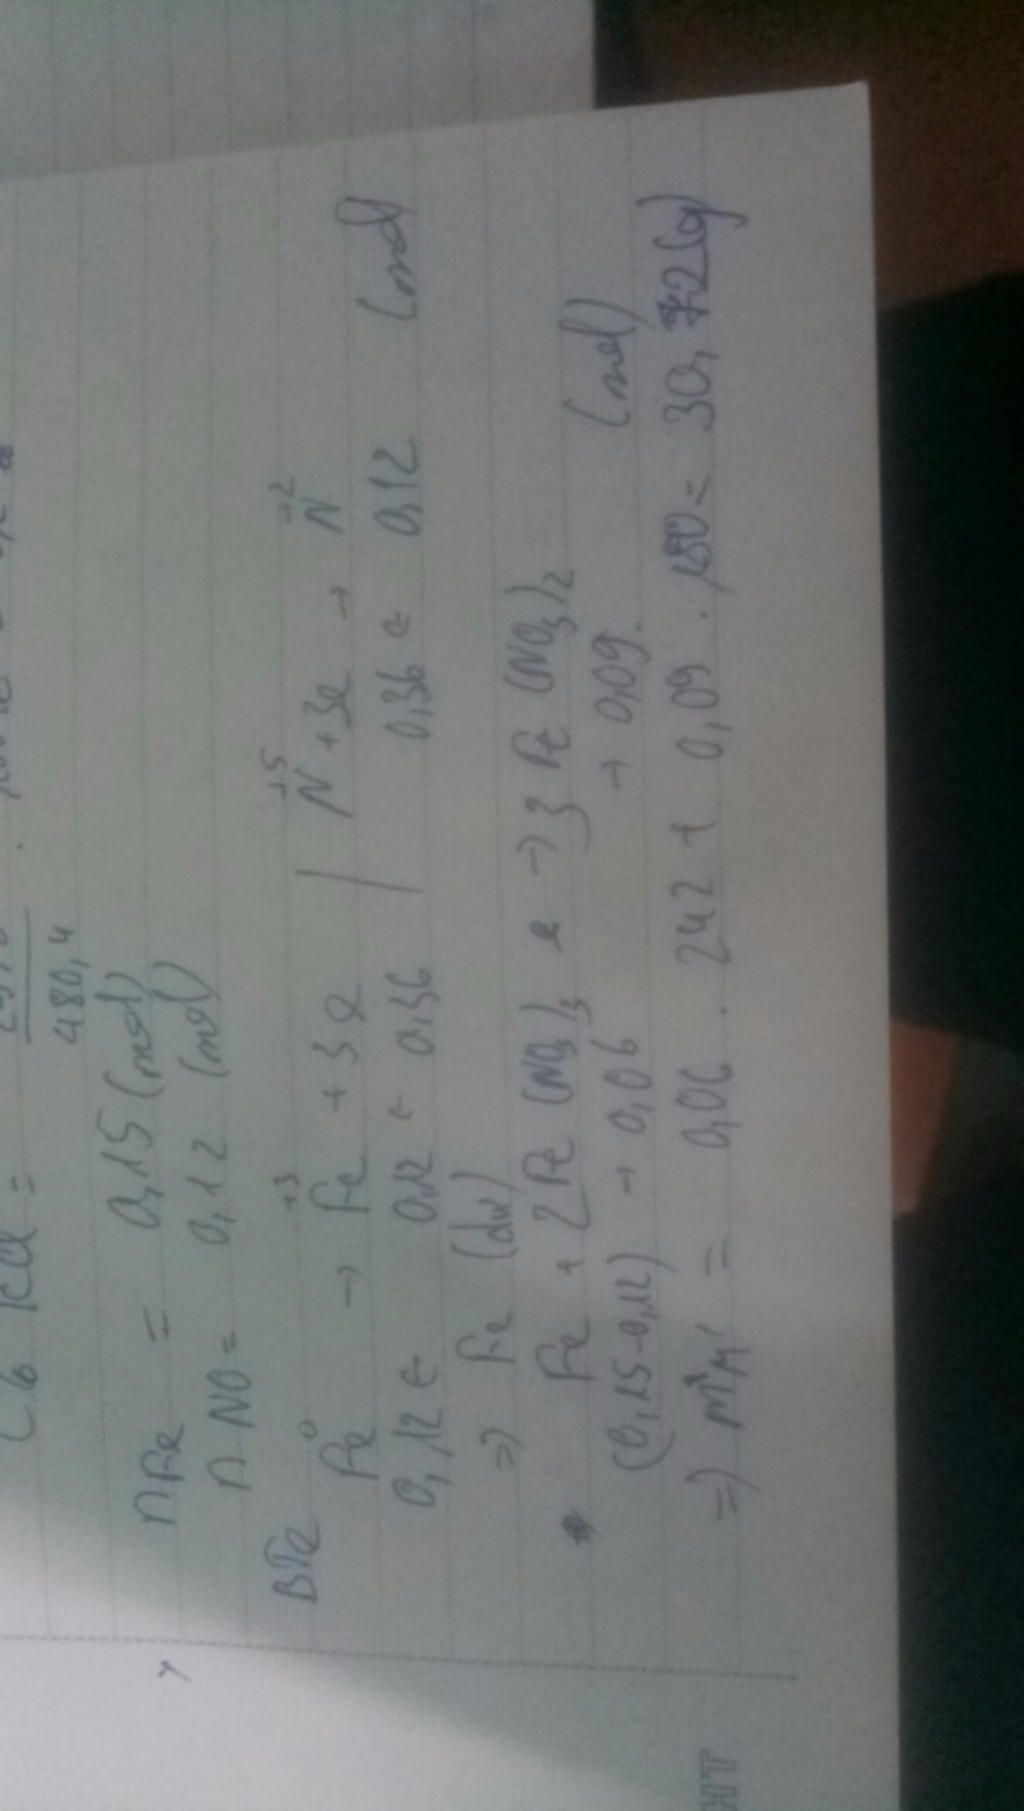 480,4
nFe = 0,15 (mol)
nNO = 0,12 (mol)
BTe
Fe⁰ → Fe⁺³ + 3e | N⁺⁵ + 3e → N⁺²
0,12 ← 0,12 ← 0,36 | 0,36 ← 0,12 (mol)
=> Fe (dư)
Fe + 2Fe(NO3)3 → 3Fe(NO3)2
(0,15-0,12) → 0,06 → 0,09. (mol)
=> mM' = 0,06 . 242 + 0,09 . 180 = 30,72(g)
HT